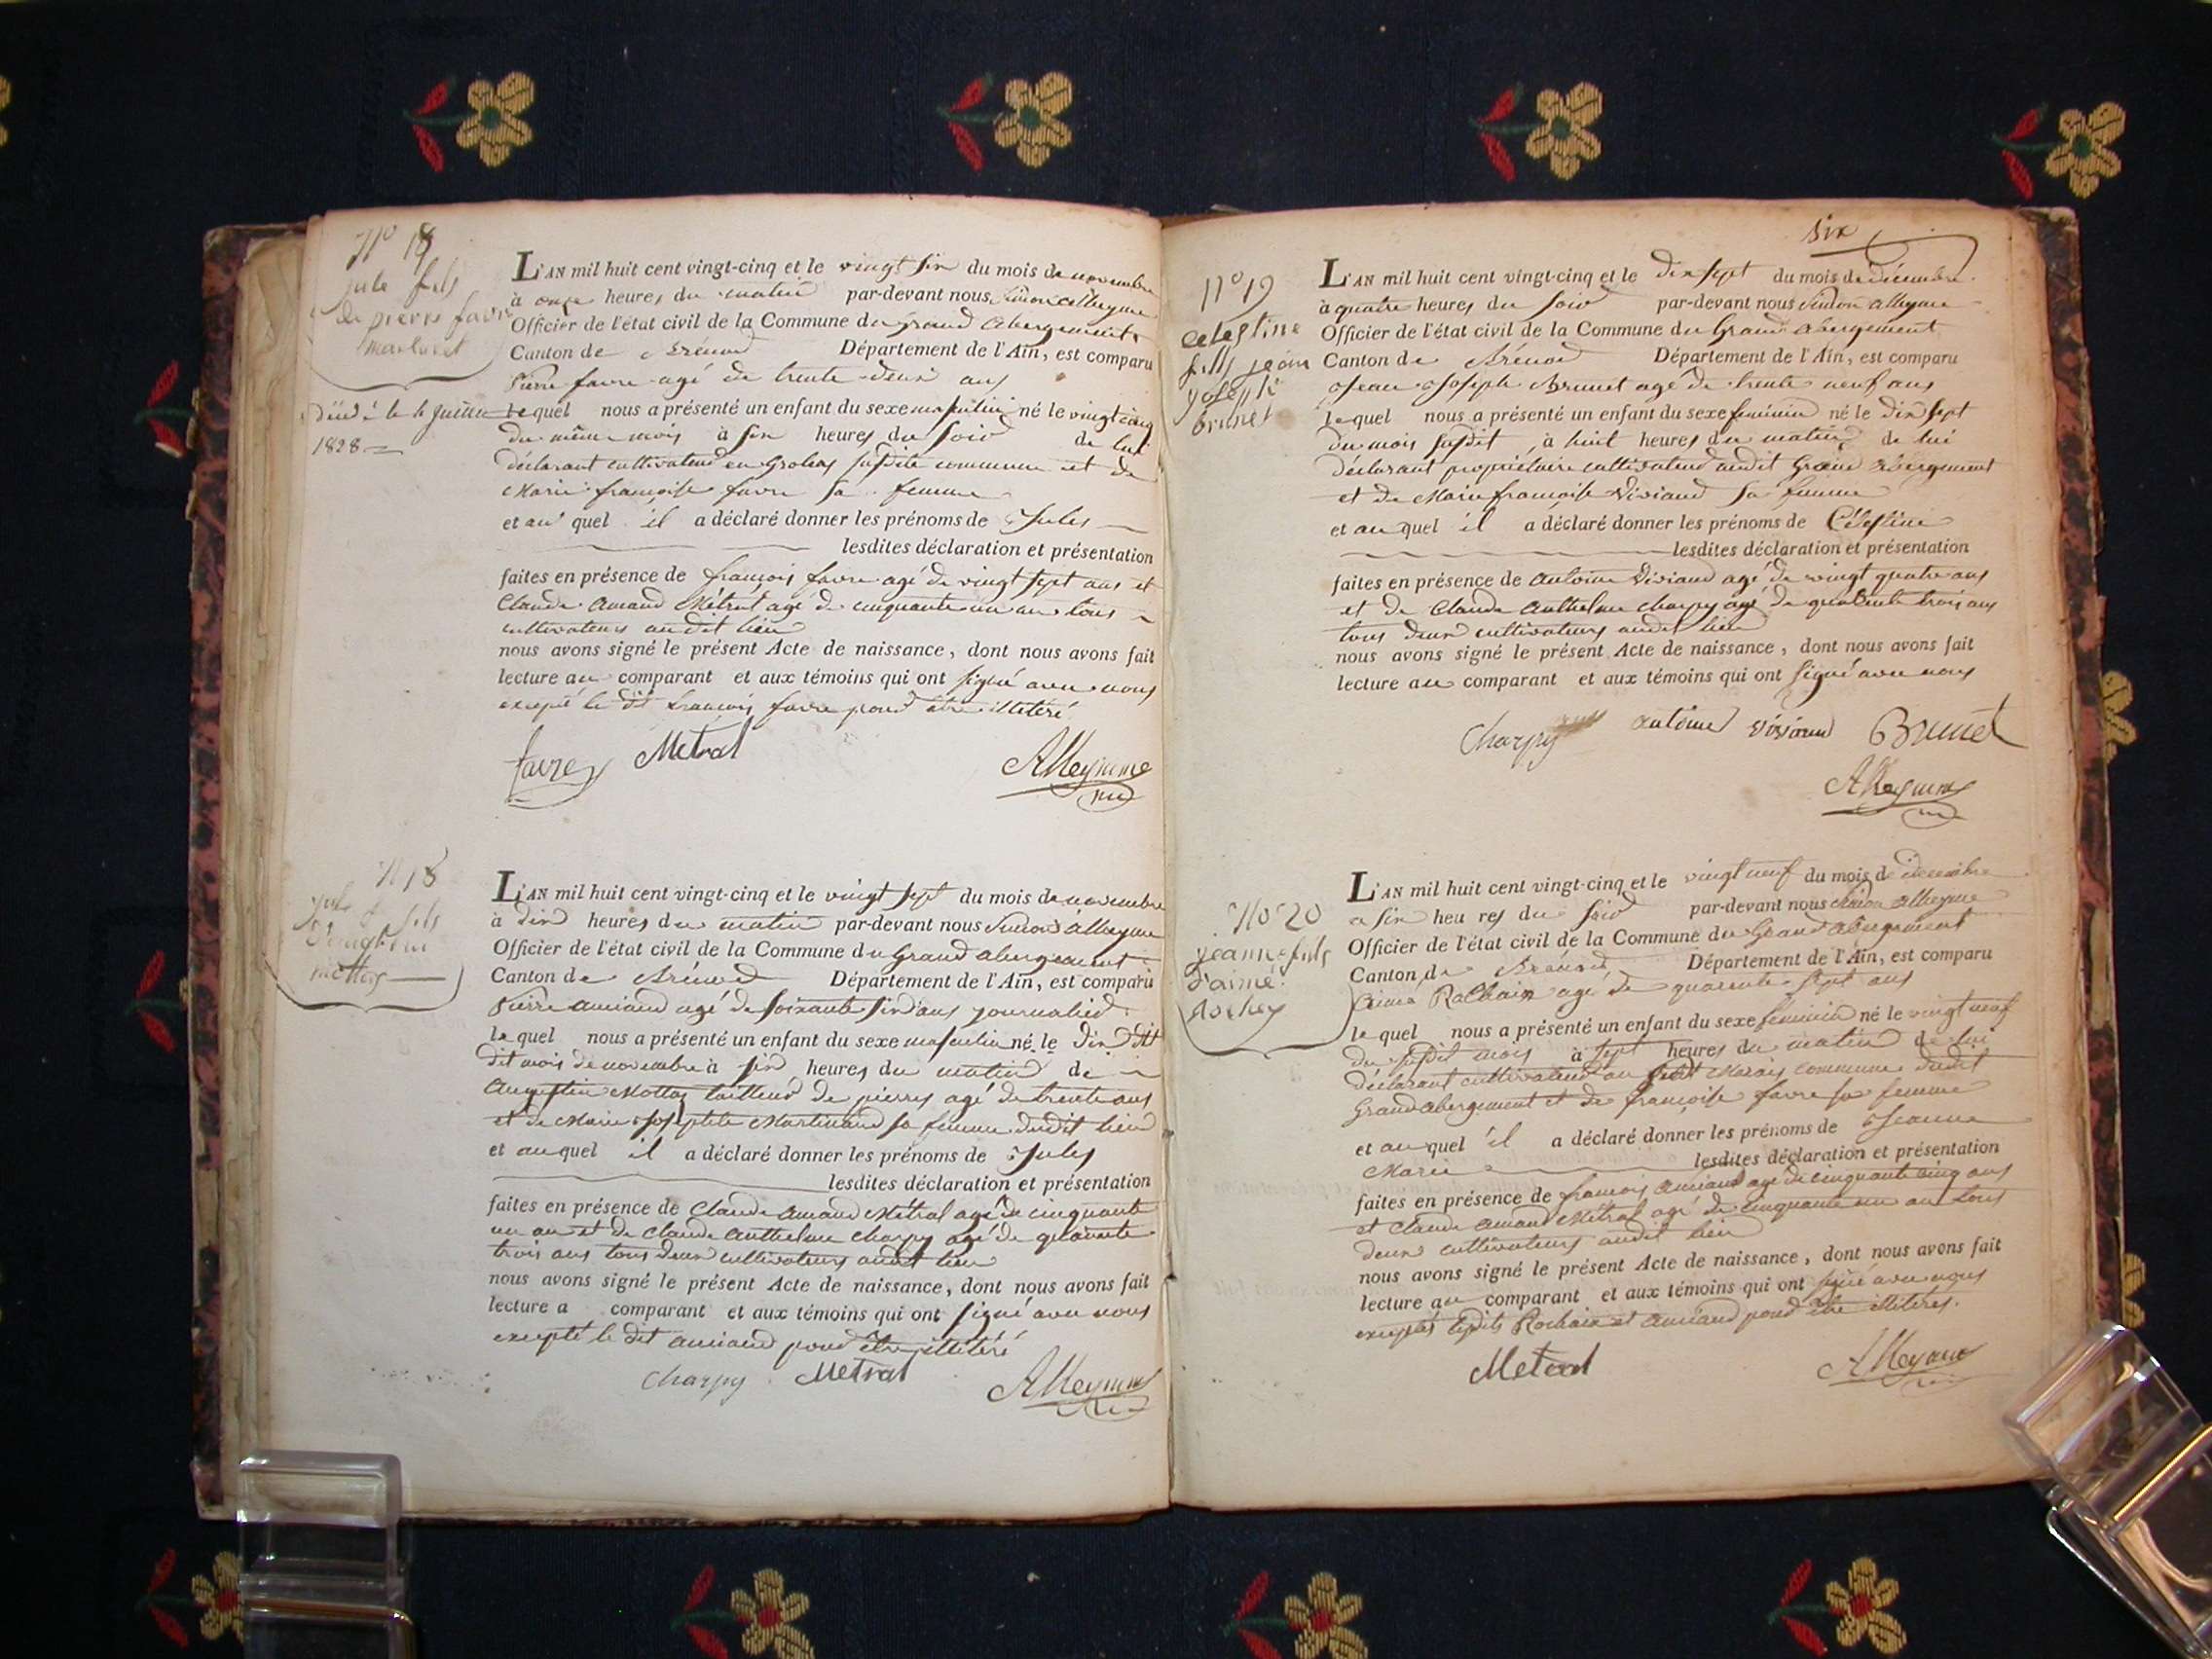 N° 18
jule fils
de pierre favre
décédé le 4 juillet
1828
L'AN mil huit cent vingt-cinq et le vingt six du mois de novembre
à onze heures du matin par-devant nous Simon alleyme
Officier de l'état civil de la Commune du grand abergement
Canton de Brénod Département de l'Ain, est comparu
Pierre favre agé de trente deux ans
lequel nous a présenté un enfant du sexe masculin né le vingt cinq
du même mois à six heures du soir de lui
déclarant cultivateur en susdite commune et de
Marie françoise favre sa femme
et au quel il a déclaré donner les prénoms de Jules
lesdites déclaration et présentation
faites en présence de françois favre agé de vingt sept ans et
Claude Amand Métral agé de cinquante un an tous
cultivateurs audit lieu
nous avons signé le présent Acte de naissance, dont nous avons fait
lecture au comparant et aux témoins qui ont signé avec nous
excepté le dit françois favre pour être illitéré
favre Metral
Alleyme
N 18
jule fils
d'augustin
mottaz
L'AN mil huit cent vingt-cinq et le vingt sept du mois de novembre
à dix heures du matin par-devant nous Simon alleyme
Officier de l'état civil de la Commune du Grand abergement
Canton de Brénod Département de l'Ain, est comparu
Pierre amiand agé de soixante six ans journalier
le quel nous a présenté un enfant du sexe masculin né le
dit mois de novembre à six heures du matin de
Augustin Mottaz tailleur de pierres agé de trente ans
et de Marie Josephte Martinand sa femme dudit lieu
et au quel il a déclaré donner les prénoms de Jules
lesdites déclaration et présentation
faites en présence de Claude Amand Métral agé de cinquante
un an et de Claude Anthelme Charpy agé de quarante
trois ans tous deux cultivateurs audit lieu
nous avons signé le présent Acte de naissance, dont nous avons fait
lecture a comparant et aux témoins qui ont signé avec nous
excepté le dit amiand pour être illitéré
Charpy Metral Alleyme
six
N° 19
celestine
fille jean
joseph
brunet
L'AN mil huit cent vingt-cinq et le dix sept du mois de décembre
à quatre heures du soir par-devant nous Simon alleyme
Officier de l'état civil de la Commune du Grand abergement
Canton de Brénod Département de l'Ain, est comparu
Jean Joseph Brunet agé de trente neuf ans
lequel nous a présenté un enfant du sexe féminin né le dix sept
du mois susdit à huit heures du matin de lui
déclarant propriétaire cultivateur audit Grand abergement
et de Marie françoise Viviand sa femme
et au quel il a déclaré donner les prénoms de Célestine
lesdites déclaration et présentation
faites en présence de Antoine Viviand agé de vingt quatre ans
et de Claude Anthelme Charpy agé de quarante trois ans
tous deux cultivateurs audit lieu
nous avons signé le présent Acte de naissance, dont nous avons fait
lecture au comparant et aux témoins qui ont signé avec nous
Charpy antoine viviand Brunet
Alleyme
No 20
d'aimé
L'AN mil huit cent vingt-cinq et le vingt neuf du mois de décembre
a six heures du soir par-devant nous Simon alleyme
Officier de l'état civil de la Commune du Grand abergement
Canton de Brénod Département de l'Ain, est comparu
Aimé Rochaix agé de quarante sept ans
le quel nous a présenté un enfant du sexe féminin né le vingt neuf
du susdit mois à sept heures du matin de lui
déclarant cultivateur au petit Marais commune dudit
Grand abergement et de françoise favre sa femme
et au quel il a déclaré donner les prénoms de Jeanne
Marie lesdites déclaration et présentation
faites en présence de françois Amiand agé de cinquante cinq ans
et Claude Amand Métral agé de cinquante un an tous
deux cultivateurs audit lieu
nous avons signé le présent Acte de naissance, dont nous avons fait
lecture au comparant et aux témoins qui ont signé avec nous
exceptés lesdits Rochaix et Amiand pour être illitérés.
Metral Alleyme